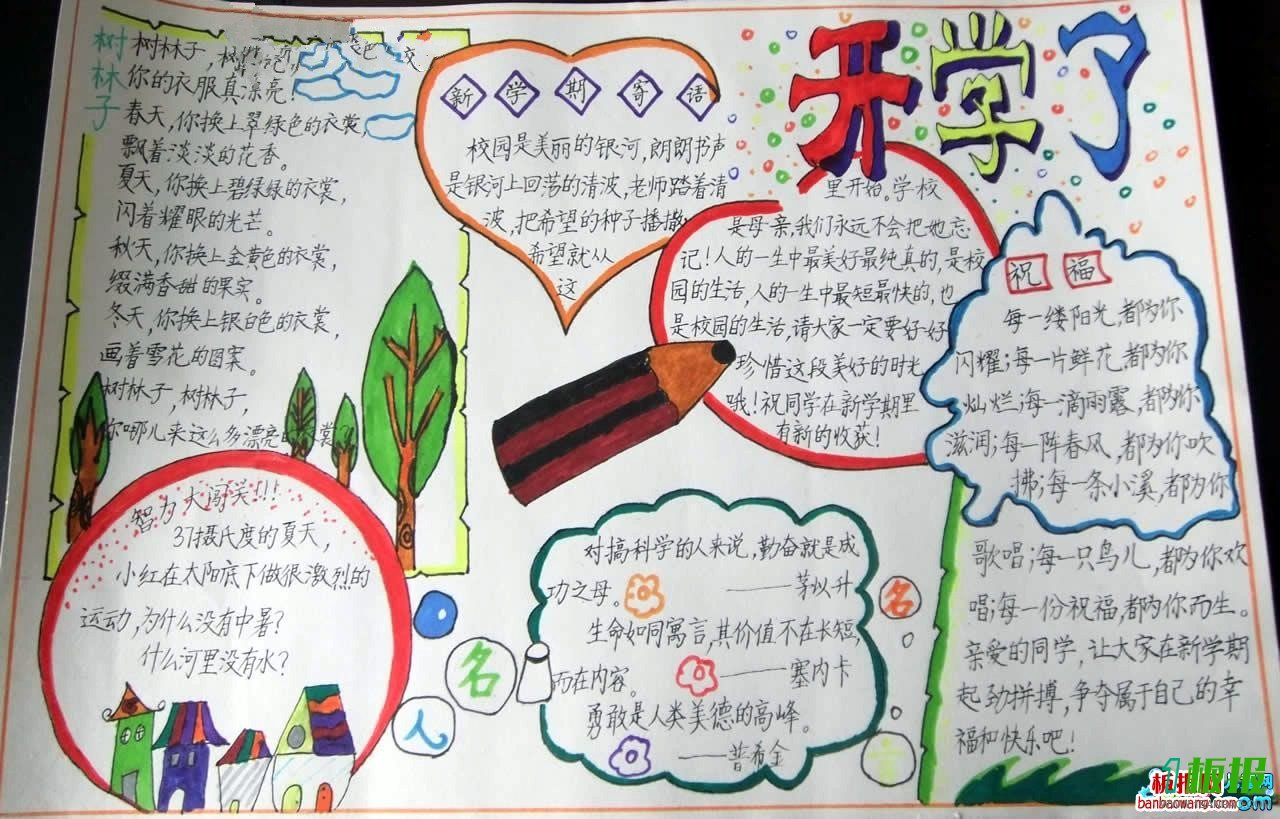 开学了
树林子
树林子,树林子,
你的衣服真漂亮!
春天,你换上翠绿色的衣裳,
飘着淡淡的花香。
夏天,你换上碧绿绿的衣裳,
闪着耀眼的光芒。
秋天,你换上金黄色的衣裳,
缀满香甜的果实。
冬天,你换上银白色的衣裳,
画着雪花的图案。
树林子,树林子,
你哪儿来这么多漂亮的衣裳?
新学期寄语
校园是美丽的银河,朗朗书声
是银河上回荡的清波,老师踏着清
波,把希望的种子播撒
希望就从
这
里开始。学校
是母亲,我们永远不会把她忘
记!人的一生中最美好最纯真的,是校
园的生活,人的一生中最短最快的,也
是校园的生活,请大家一定要好好
珍惜这段美好的时光
哦!祝同学在新学期里
有新的收获!
祝福
每一缕阳光,都为你
闪耀;每一片鲜花,都为你
灿烂;每一滴雨露,都为你
滋润;每一阵春风,都为你吹
拂;每一条小溪,都为你
歌唱;每一只鸟儿,都为你欢
唱;每一份祝福,都为你而生。
亲爱的同学,让大家在新学期
起劲拼搏,争夺属于自己的幸
福和快乐吧!
智力大闯关!!!
37摄氏度的夏天,
小红在太阳底下做很激烈的
运动,为什么没有中暑?
什么河里没有水?
人名
名言
对搞科学的人来说,勤奋就是成
功之母。
——茅以升
生命如同寓言,其价值不在长短,
而在内容。
——塞内卡
勇敢是人类美德的高峰。
——普希金
板报
banbaowang.com